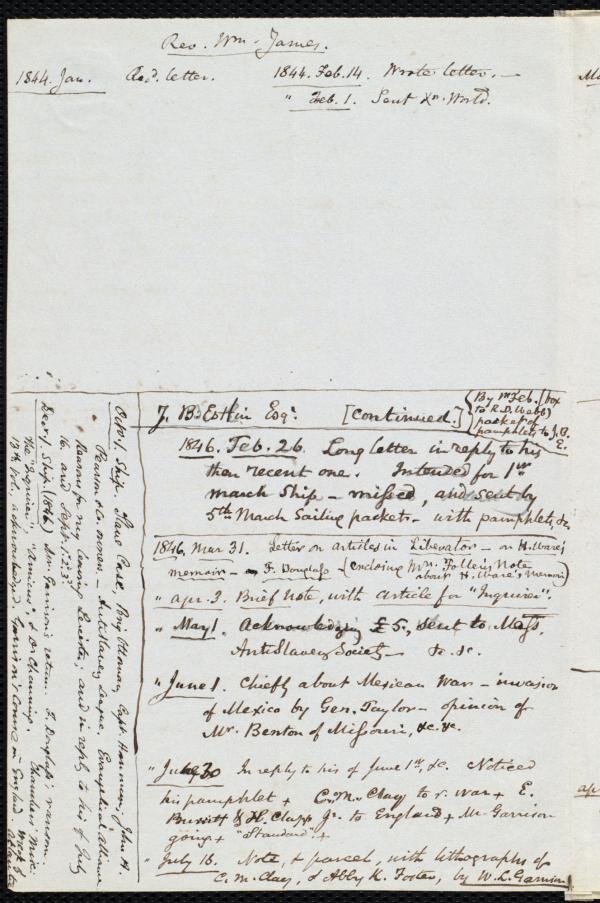 Rev. Wm. James.
1844. Jan. Recd. letter. 1844. Feb. 14. Wrote letter. —
" Feb. 1. Sent Xn. World.
J. B. Estlin Esqr. [Continued.]
(By Mr Feb. (box
to R. D. Webb)
packet of
pamphlets to J. B.
E.
1846. Feb. 26. Long letter in reply to his
then recent one. Intended for 1st
March Ship — missed, and sent by
5th March Sailing packet — with pamphlets, &c.
1846. Mar 31. Letter on articles in Liberator — on H. Ware's
memoir — F. Douglass — (enclosing Mrs. Follen's Note
about H. Ware's Memoir)
" Apr. 3. Brief Note, with Article for "Inquirer".
" May 1. Acknowledging £5., sent to Mass.
AntiSlavery Society — &c. &c.
" June 1. Chiefly about Mexican War — invasion
of Mexico by Gen. Taylor — opinion of
Mr. Benton of Missouri, &c. &c.
" June 30 In reply to his of June 1st, &c. Noticed
his pamphlet + C. M. Clay to the war + E.
Burritt & H. Clapp Jr. to England + Mr. Garrison
going + "Standard". +
" July 16. Note, & parcel, with lithographs of
C. M. Clay, & Abby K. Foster, by W. L. Garrison
Octo. 1. Ship. Slave Case, Brig Ottoman, Capt. Hannum; John H.
Pearson & Co. owners — AntiSlavery League, Evangelical Alliance
Reasons for my leaving Leicester; and in reply to his of July
16. and Sept. 1. 2. 3.
Decr. 1. Ship. (1846) Mr. Garrison's return. F. Douglass's ransom.
the "Inquirer", Dr. Channing.
13th vol., acknowledged. Garrison's Course in England